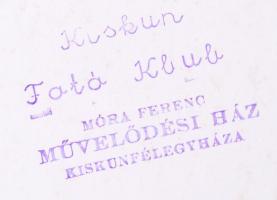 Kiskun
Fotó Klub
MÓRA FERENC
MŰVELŐDÉSI HÁZ
KISKUNFÉLEGYHÁZA